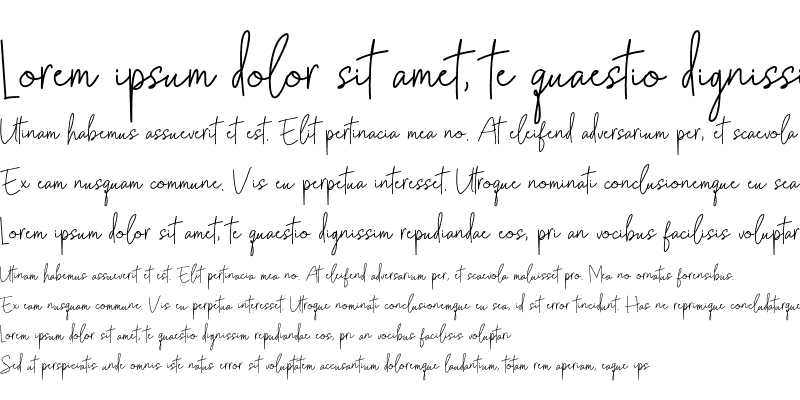 Lorem ipsum dolor sit amet, te quaestio dignissi
Utinam habemus assueverit et est. Elit pertinacia mea no. At eleifend adversarium per, et scaevola
Ex eam nusquam commune. Vis eu perpetua interesset. Utroque nominati conclusionemque eu sea
Lorem ipsum dolor sit amet, te quaestio dignissim repudiandae eos, pri an vocibus facilisis voluptar
Utinam habemus assueverit et est. Elit pertinacia mea no. At eleifend adversarium per, et scaevola maluisset pro. Mea no ornatus forensibus.
Ex eam nusquam commune. Vis eu perpetua interesset. Utroque nominati conclusionemque eu sea, id sit error tincidunt. Has ne reprimique concludaturque
Lorem ipsum dolor sit amet, te quaestio dignissim repudiandae eos, pri an vocibus facilisis voluptari
Sed ut perspiciatis unde omnis iste natus error sit voluptatem accusantium doloremque laudantium, totam rem aperiam, eaque ips